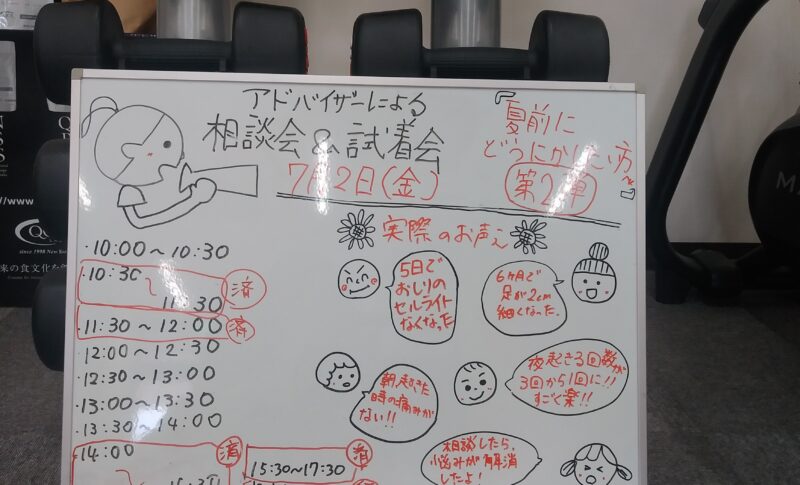 アドバイザーによる
相談会&試着会
7月2日(金)
『夏前に
どうにかしたい方
第2弾
~』
実際のお声♪
・10:00~10:30
・10:30
~
11:30
済
・11:30~12:00
済
・12:00~12:30
・12:30~13:00
・13:00~13:30
・13:30~14:00
・14:00
済
15:30~17:30
済
5日で
おしりの
セルライト
なくなった
6ヶ月で
足が2cm
細くなった。
朝起きた
時の痛みが
ない!!
夜起きる回数が
3回から1回に!!
すごく楽!!
相談したら、
悩みが解消
したよ!
www
since 1998 New
来の食文化を
MA